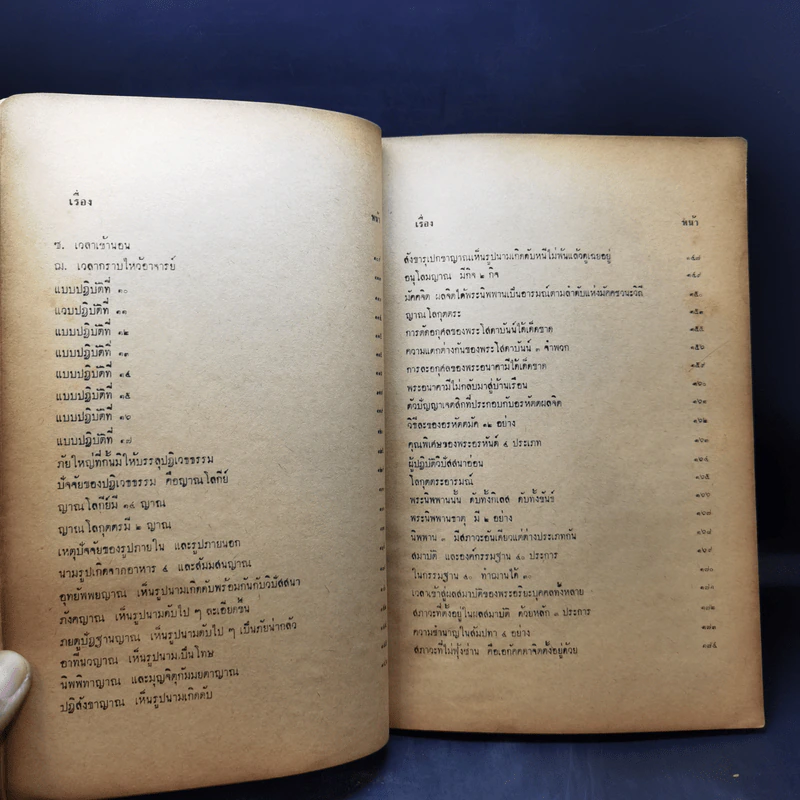 เรื่อง
หน้า
ซ. เวลาเข้านอน
ฌ. เวลากราบไหว้อาจารย์
แบบปฏิบัติที่ ๑๐
แบบปฏิบัติที่ ๑๑
แบบปฏิบัติที่ ๑๒
แบบปฏิบัติที่ ๑๓
แบบปฏิบัติที่ ๑๔
แบบปฏิบัติที่ ๑๕
แบบปฏิบัติที่ ๑๖
แบบปฏิบัติที่ ๑๗
ภัยใหญ่ที่กั้นมิให้บรรลุปฏิเวชธรรม
ปัจจัยของปฏิเวชธรรม คือญาณโลกีย์
ญาณโลกีย์มี ๑๔ ญาณ
ญาณโลกุตตรมี ๒ ญาณ
เหตุปัจจัยของรูปภายใน และรูปภายนอก
นามรูปเกิดจากอาหาร ๔ และสัมมสนญาณ
อุทยัพพยญาณ เห็นรูปนามเกิดดับพร้อมกันกับวิปัสสนา
ภังคญาณ เห็นรูปนามดับไป ๆ ละเอียดขึ้น
ภยตูปัฏฐานญาณ เห็นรูปนามดับไป ๆ เป็นภัยน่ากลัว
อาทีนวญาณ เห็นรูปนามเป็นโทษ
นิพพิทาญาณ และมุญจิตุกัมมยตาญาณ
ปฏิสังขาญาณ เห็นรูปนามเกิดดับ
เรื่อง หน้า
สังขารุเปกขาญาณเห็นรูปนามเกิดดับหนีไม่พ้นแล้วดูเฉยอยู่ ๑๔๗
อนุโลมญาณ มีกิจ ๒ กิจ ๑๔๙
มัคคจิต ผลจิตได้พระนิพพานเป็นอารมณ์ตามลำดับแห่งมัคคชวนะวิถี ๑๕๐
ญาณโลกุตตระ ๑๕๑
การตัดอกุศลของพระโสดาบันนั้นได้เด็ดขาด ๑๕๕
ความแตกต่างกันของพระโสดาบันนั้น ๓ จำพวก ๑๕๖
การละอกุศลของพระอนาคามีได้เด็ดขาด ๑๕๙
พระอนาคามีไม่กลับมาสู่บ้านเรือน ๑๖๐
ตัวปัญญาเจตสิกที่ประกอบกับอรหัตตผลจิต ๑๖๑
วิธีละของอรหัตตมัค ๑๒ อย่าง ๑๖๒
คุณพิเศษของพระอรหันต์ ๔ ประเภท ๑๖๓
ผู้ปฏิบัติวิปัสสนาอ่อน ๑๖๔
โลกุตตระอารมณ์ ๑๖๕
พระนิพพานนั้น ดับทั้งกิเลส ดับทั้งขันธ์ ๑๖๖
พระนิพพานธาตุ มี ๒ อย่าง ๑๖๗
นิพพาน ๓ มีสภาวะอันเดียวแต่ต่างประเภทกัน ๑๖๘
สมาบัติ และองค์กรรมฐาน ๔๐ ประการ ๑๖๙
ในกรรมฐาน ๔๐ ทำฌานได้ ๓๐ ๑๘๐
เวลาเข้าสู่ผลสมาบัติของพระอริยะบุคคลทั้งหลาย
สภาวะที่ตั้งอยู่ในผลสมาบัติ ด้วยหลัก ๓ ประการ
ความชำนาญในสัมปทา ๔ อย่าง
สภาวะที่ไม่ฟุ้งซ่าน คือเอกัคคตาจิตตั้งอยู่ด้วย